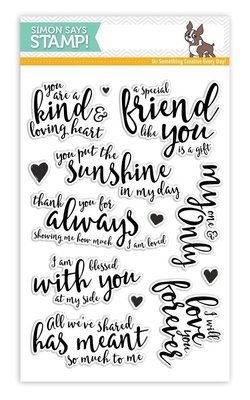 SIMON SAYS
STAMP!
Do Something Creative Every Day!
you
are a
kind &
loving heart
a special
friend
like you
is a gift
you put the
sunshine
in my day
my one &
Only
thank you for
always
showing me how much I am loved
I am blessed
with you
at my side
I will
love you
forever
All we've shared
has meant
so much to me